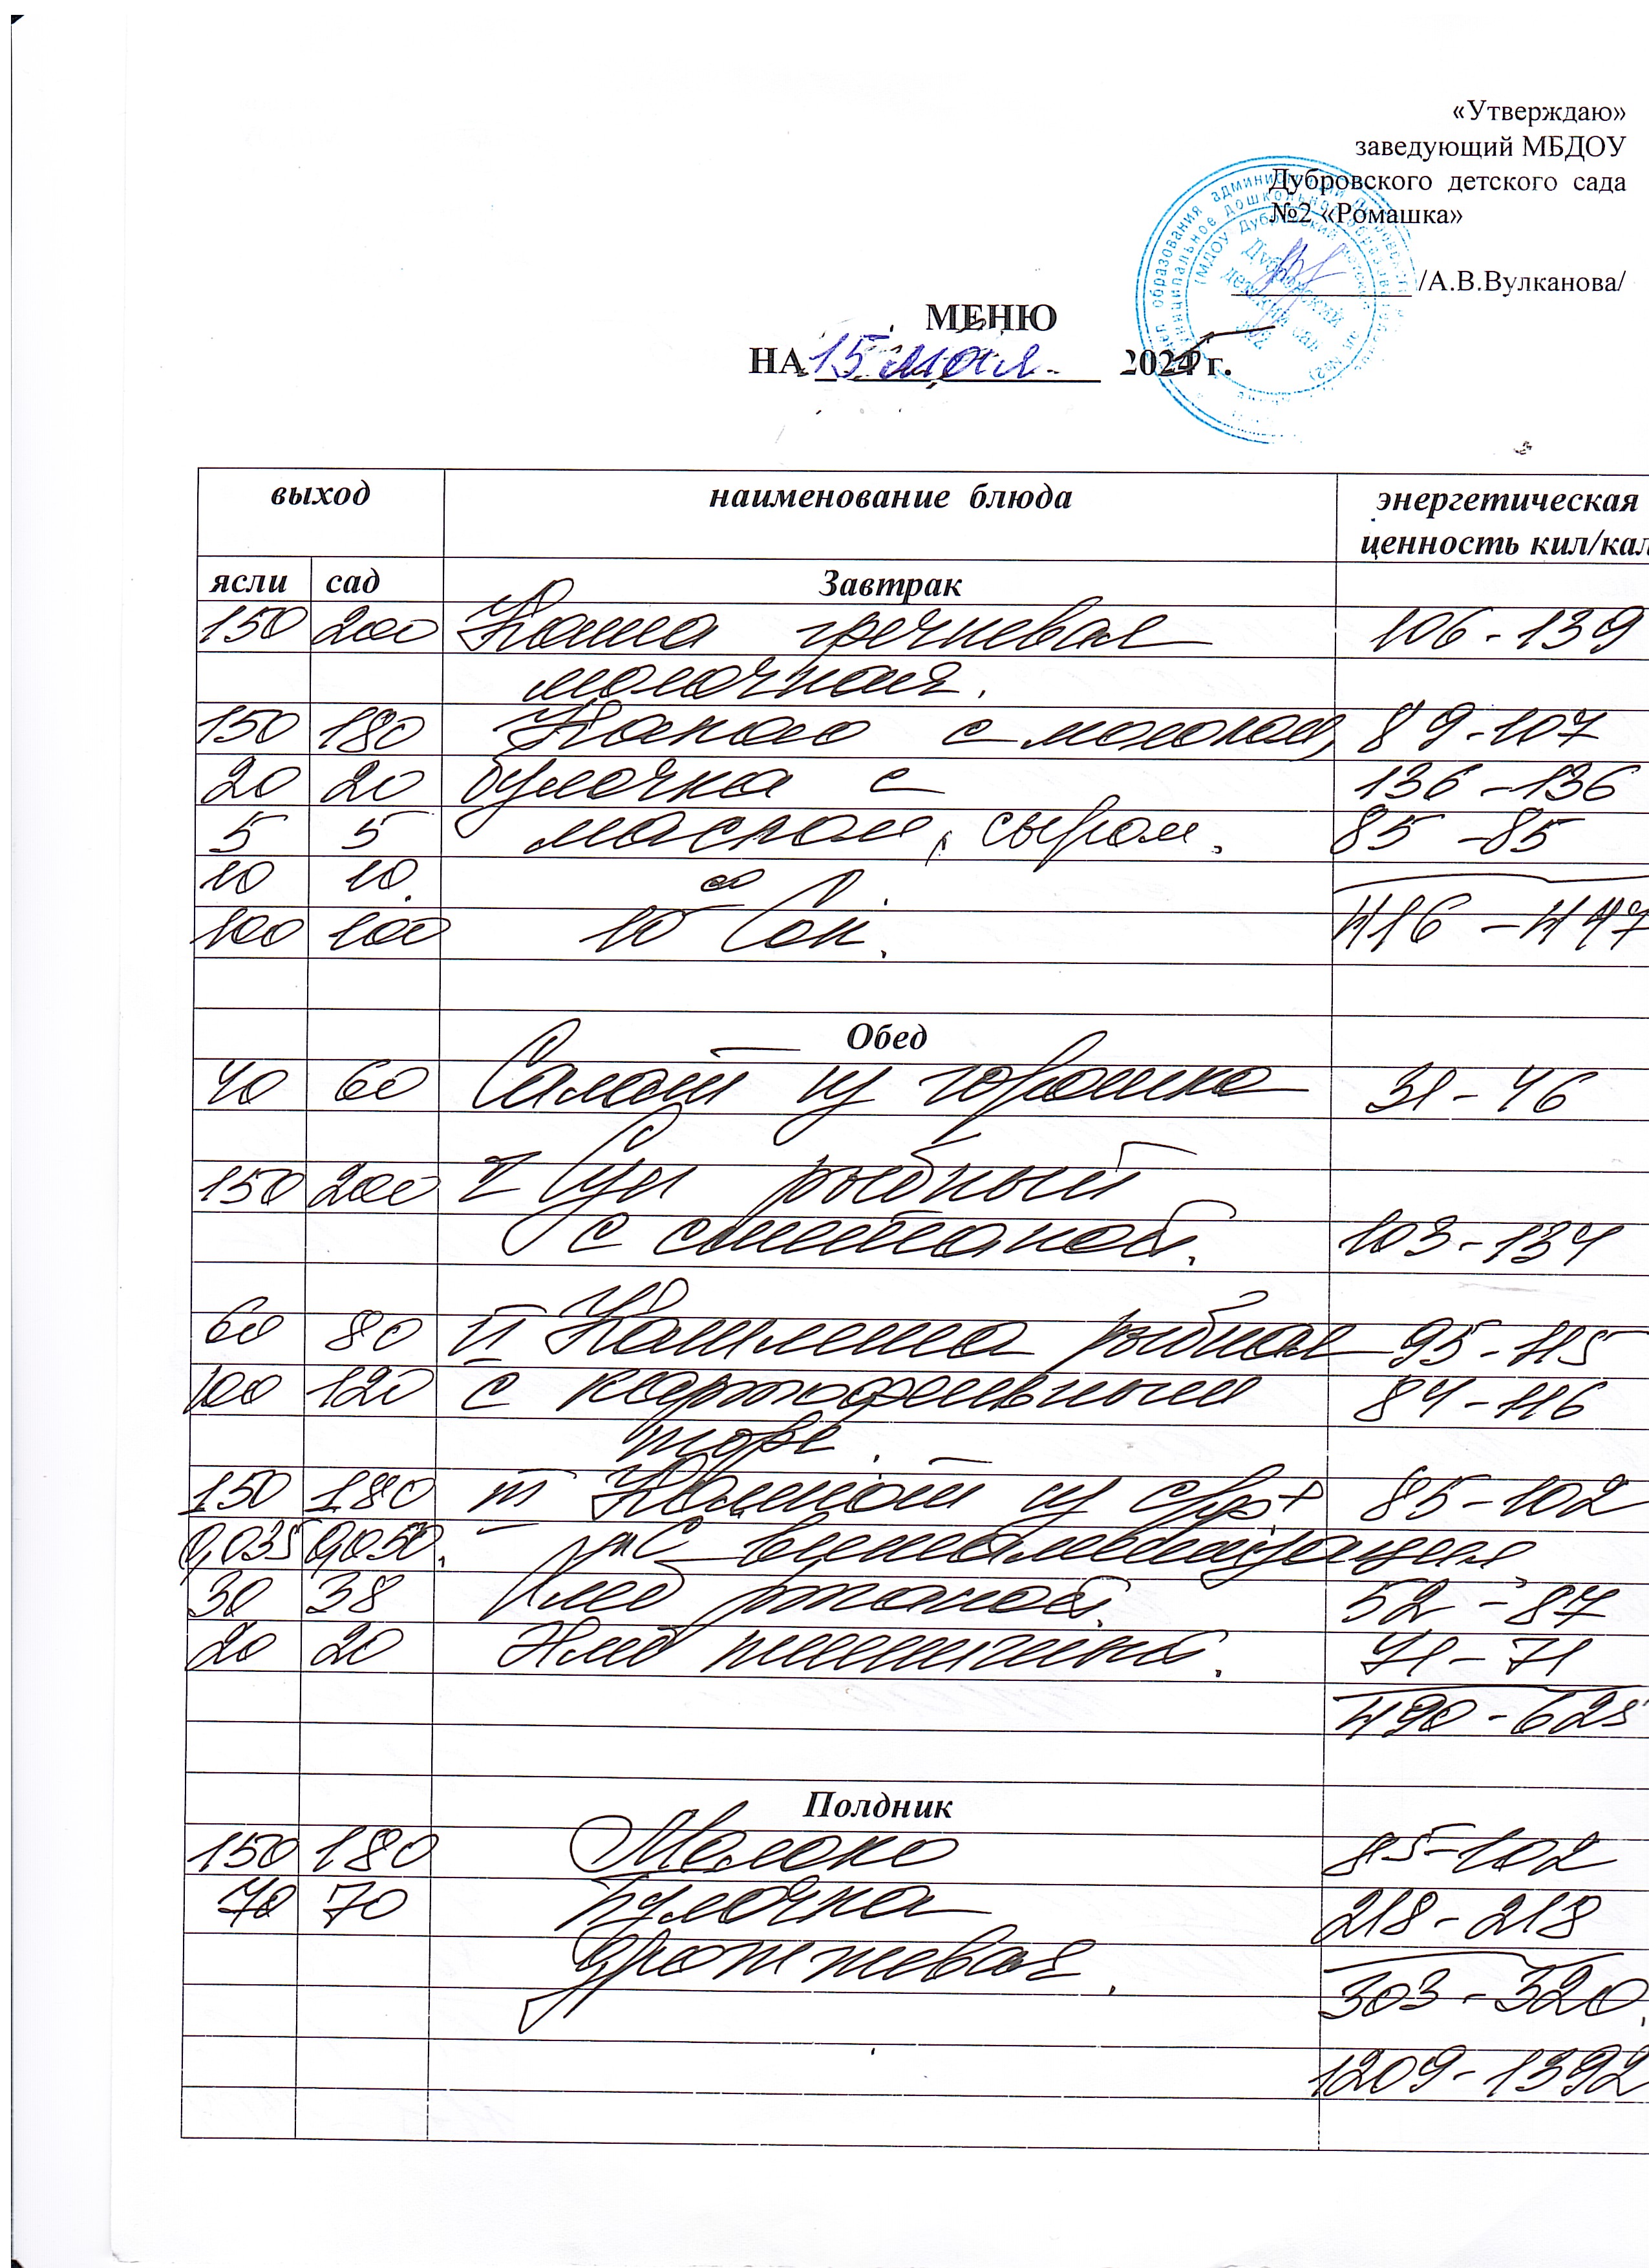 «Утверждаю»
заведующий МБДОУ
Дубровского детского сада
№2 «Ромашка»
/А.В.Вулканова/
МЕНЮ
НА 15 мая 2024 г.
выход наименование блюда энергетическая
ценность кил/кал
ясли сад Завтрак
150 200 Каша гречневая 106-139
молочная.
150 180 Какао с молоком, 89-107
20 20 булочка с 136-136
5 5 маслом, сыром. 85-85
10 10.
100 100 10 00 Сок. 416-447
Обед
40 60 Салат из горошка 31-46
150 200 I Суп рыбный
с сметаной. 103-134
60 80 II Котлета рыбная 95-115
100 120 с картофельным 84-116
пюре.
150 180 III Компот из с/фр+ 85-102
0,035 0,050. "С" витаминизация,
30 38 Хлеб ржаной. 52-87
20 20 Хлеб пшеничный. 71-71
490-625
Полдник
150 180 Молоко 85-102
70 70 Булочка 218-218
дрожжевая. 303-320.
1209-1392